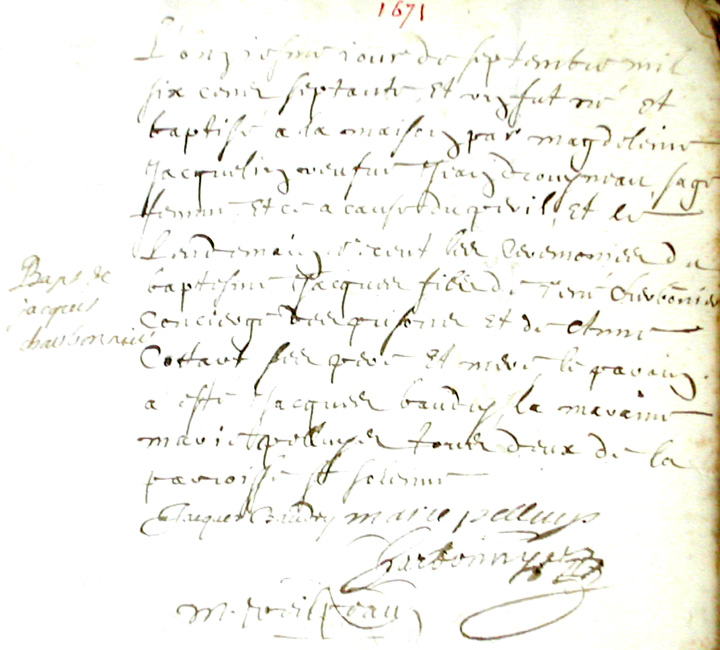 1671
L'onziesme jour de septembre mil
six cens septante et un fut né et
baptisé a la maison par magdeleine
Jacquelin veufve Jean sage
femme et ce a cause du peril, et le
Lendemain receut les ceremonies du
baptesme Jacques filz de rené Charbonier
Concierge des prisons et de Anne
Cottart ses pere et mere, le parain
a esté Jacques baudry la maraine
marie pelluys tous deux de la
paroisse st solenne
Bapt de
jacques
charbonnier
Jacques Baudry marie pelluys
Charbonnyer